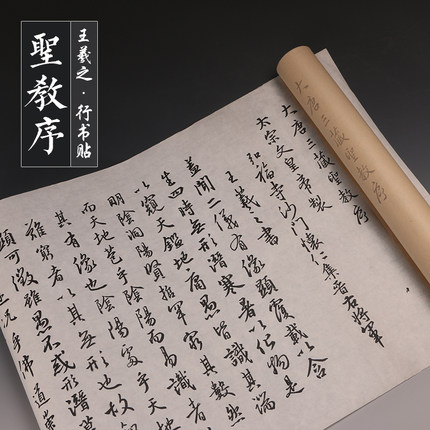 王羲之·行书贴
聖教序
大唐三藏聖教序
大唐三藏聖教序
太宗文皇帝製
弘福寺沙門懷仁集晉右將軍
王羲之書
蓋聞二儀有像顯覆載以含
生四時無形潛寒暑以化物是
以窺天鑑地庸愚皆識其端
明陰洞陽賢哲罕窮其數然
而天地苞乎陰陽而易識者
其有像也陰陽處乎天地
難窮者以其無形也故知
顯可徵雖愚不惑形潛莫
況乎佛道崇